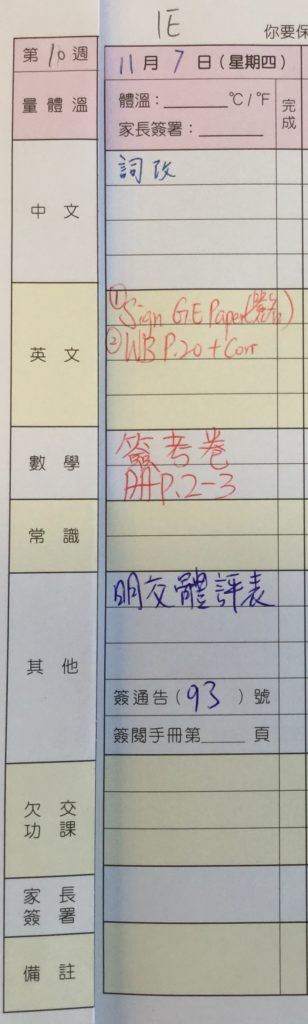 1E
你要保
第10週
11月7日(星期四)
量體溫
體溫:________°C/°F
家長簽署:________
完成
中文
詞改
英文
① Sign GE Paper(
② WB P.20 + Corr
數學
簽考卷
冊P.2-3
常識
其他
明交體評表
簽通告(93)號
簽閱手冊第____頁
欠交功課
家長簽署
備註